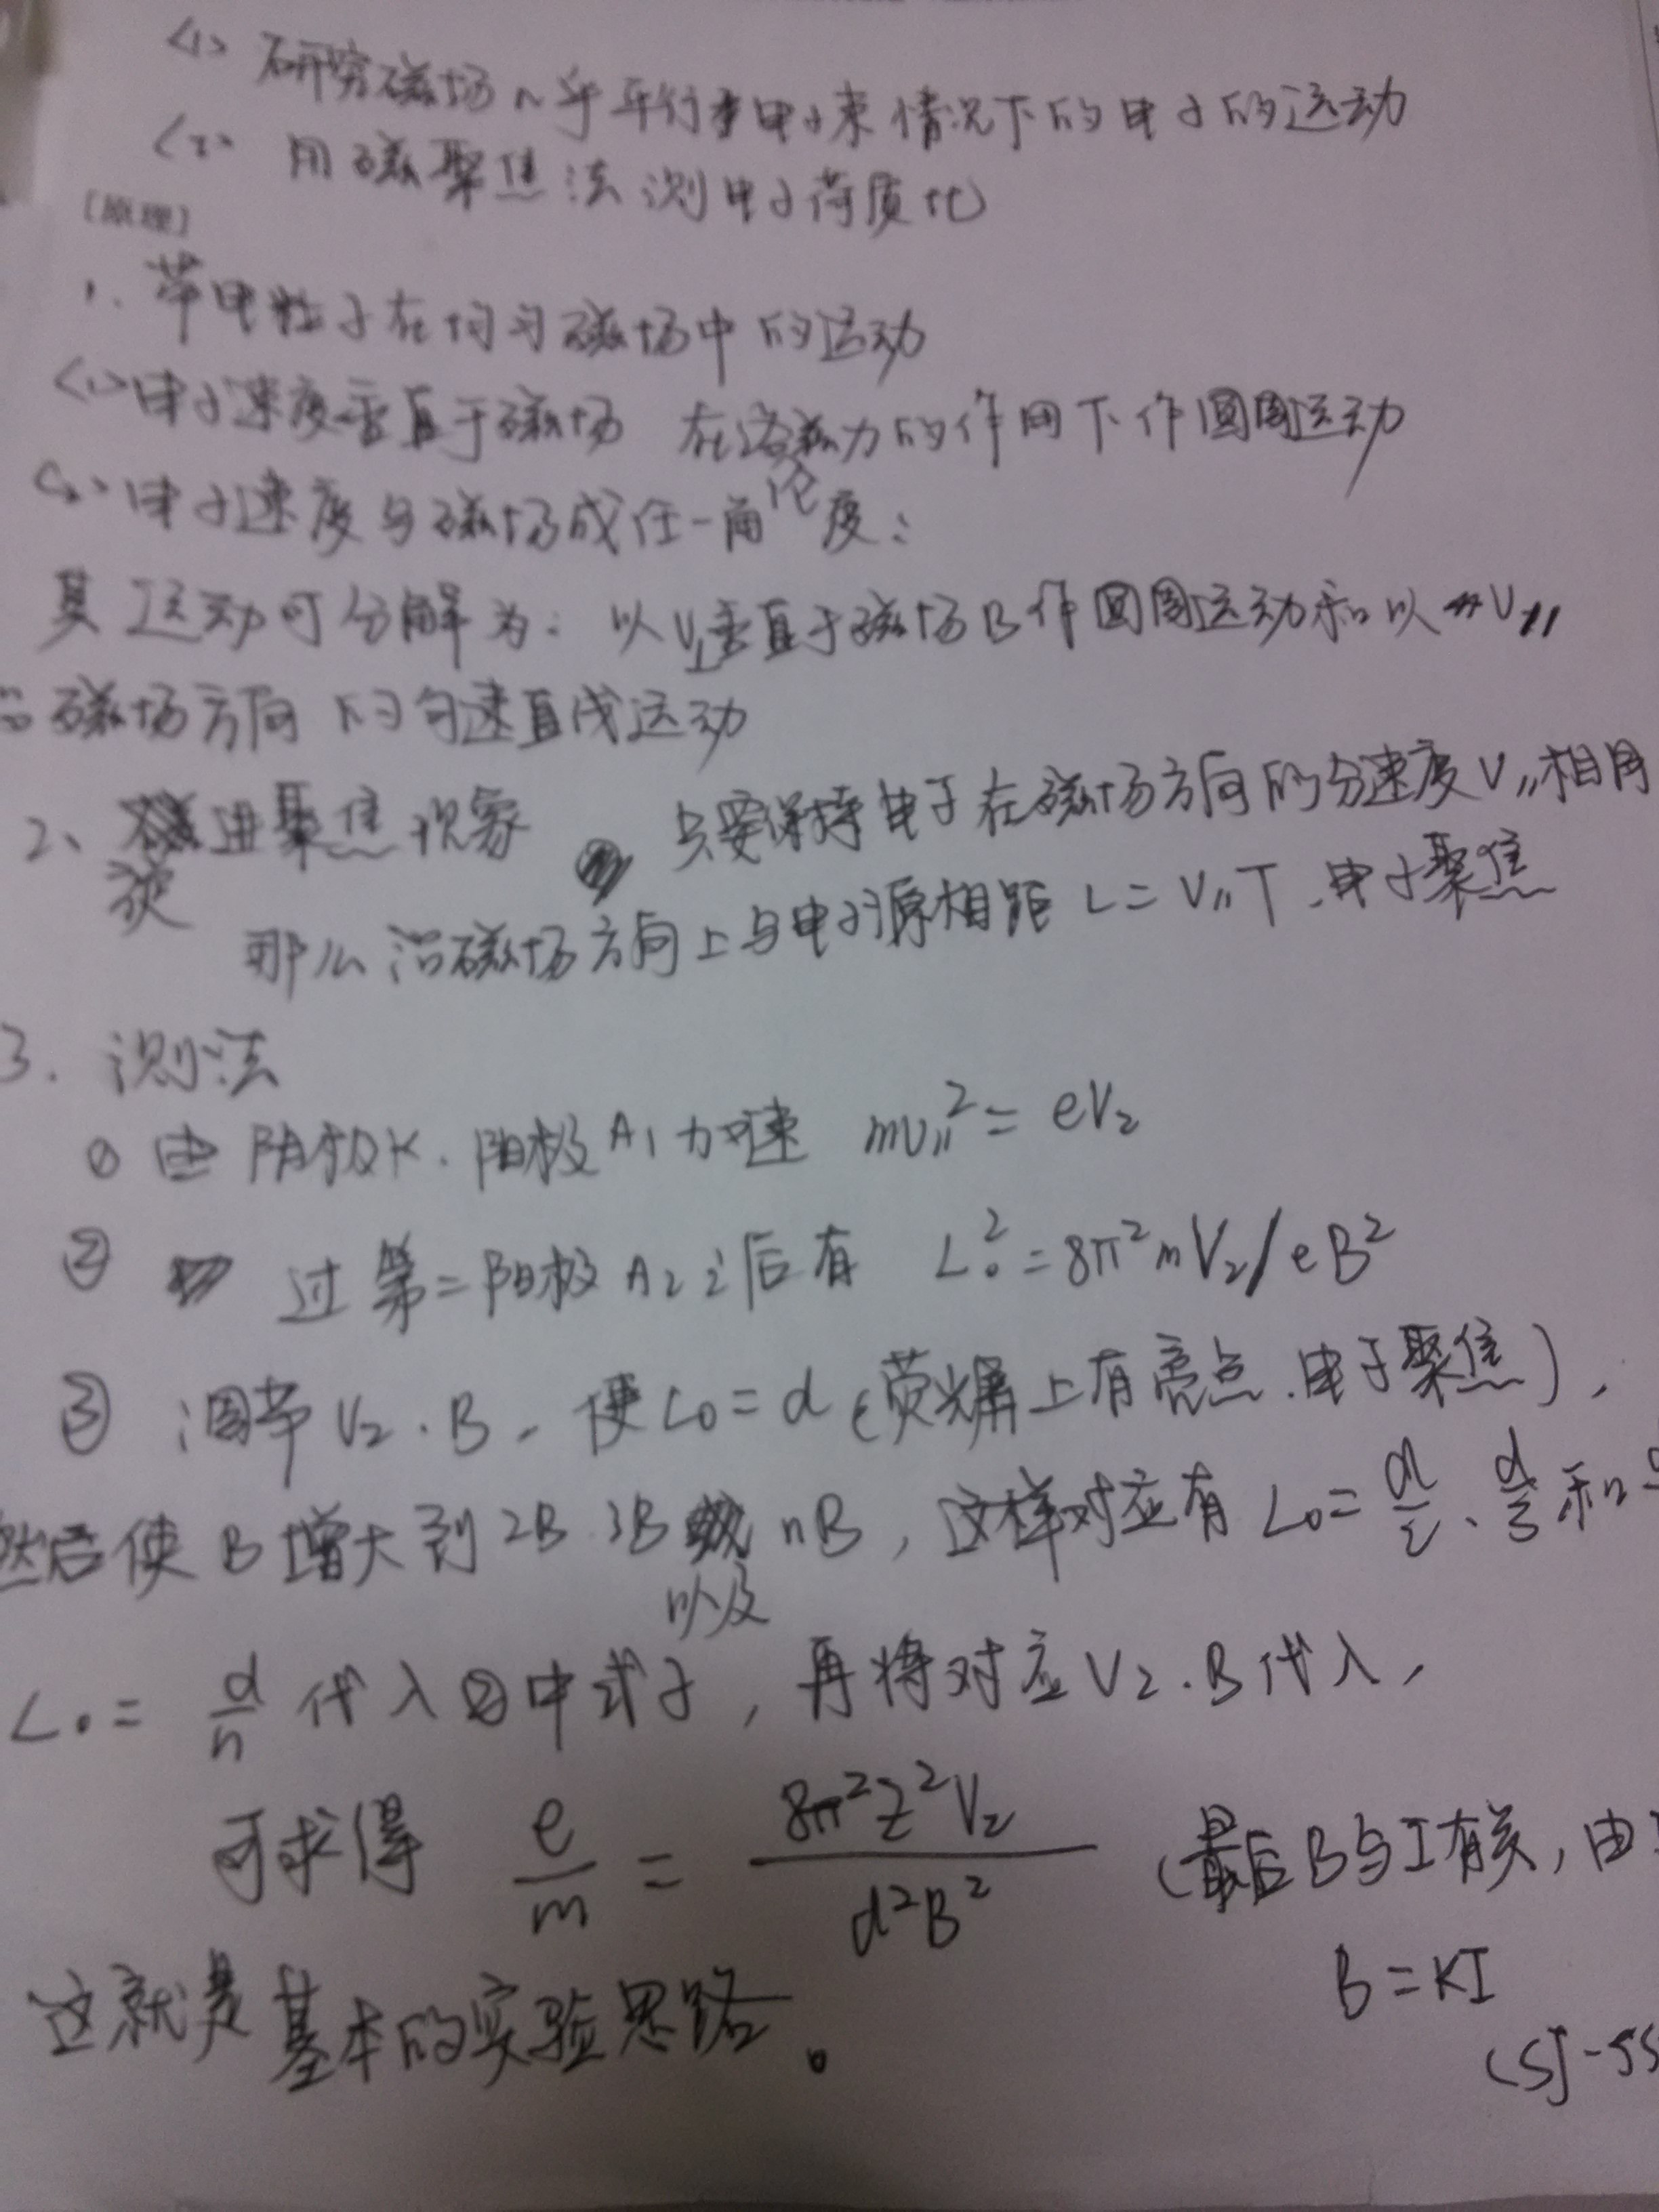 <1> 研究磁场几乎平行电子束情况下的电子的运动
<2> 用磁聚焦法测电子荷质比
[原理]
1. 带电粒子在均匀磁场中的运动
<1> 电子速度垂直于磁场 在洛伦力的作用下作圆周运动
<2> 电子速度与磁场成任一角度:
其运动可分解为: 以V⊥垂直于磁场B作圆周运动和以V∥
沿磁场方向的匀速直线运动
2、 聚焦现象 只要保持电子在磁场方向的分速度V∥相同
那么沿磁场方向上与电子源相距 L=V∥T, 电子聚焦
3. 测法
① 由阴极K、阳极A1加速 mv∥²= eV₂
② 过第二阳极A2之后有 L₀²=8π²mV₂/eB²
③ 调节V₂、B, 使L₀=d (荧光屏上有亮点、电子聚焦),
然后使B增大到2B、3B以及nB, 这样对应有 L₀=d/2、d/3和
L₀= d/n 代入②中式子, 再将对应V₂、B代入,
可求得 e/m = 8π²Z²V₂/d²B² (最后B与I有关, 由
B=KI
这就是基本的实验思路。